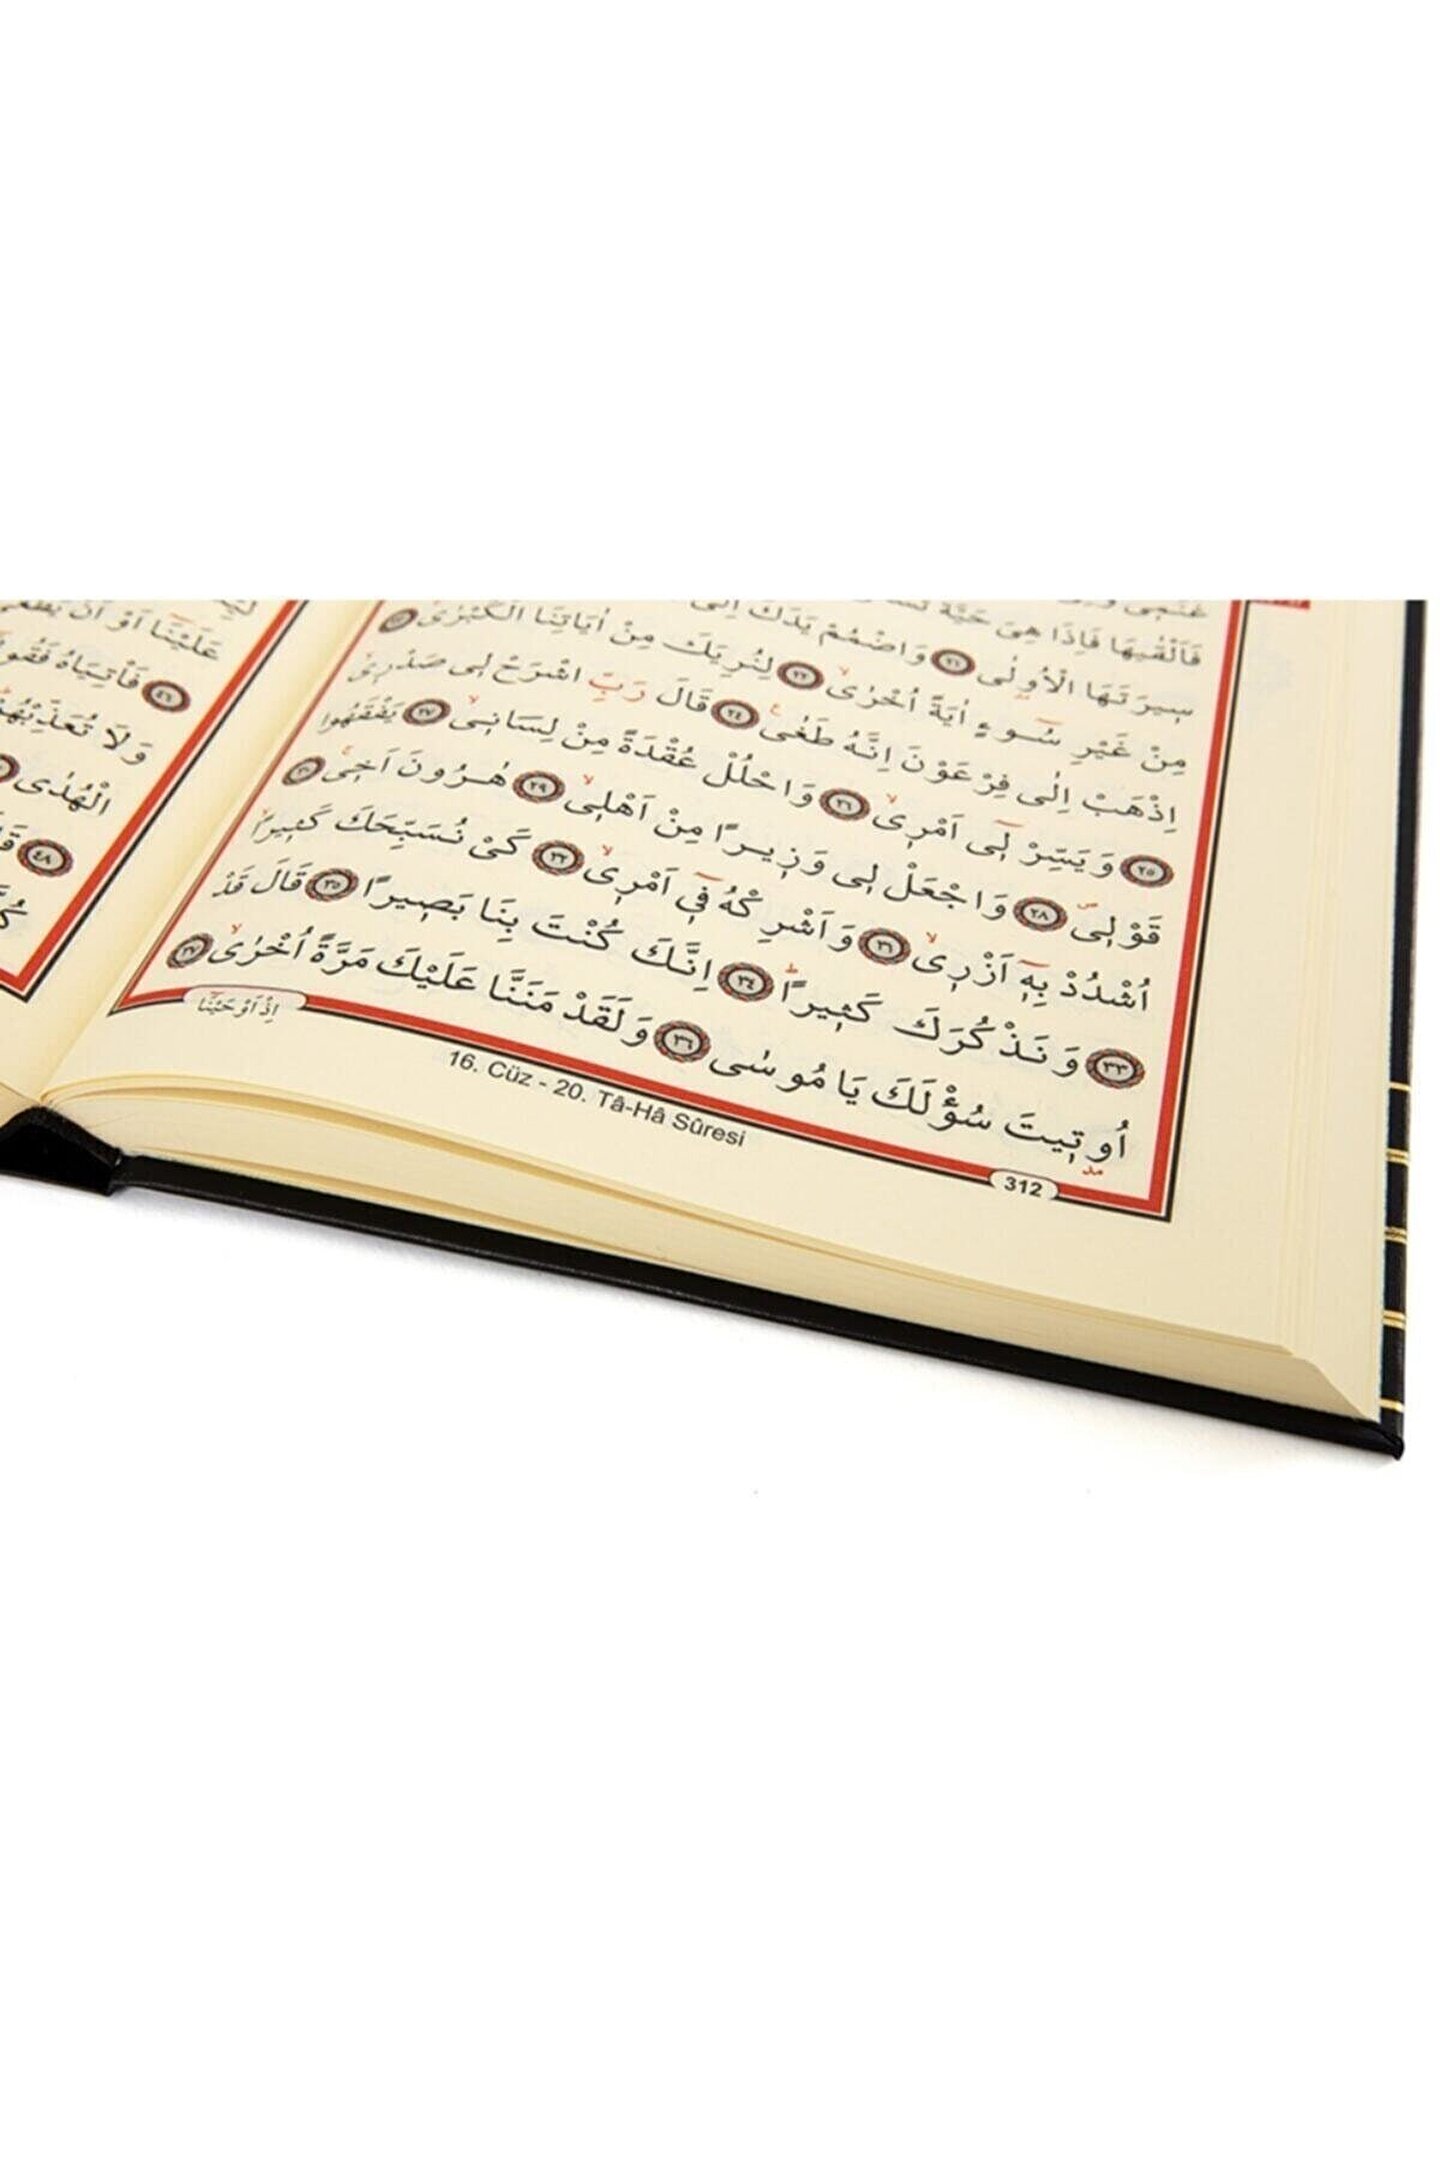 فَاَلْقٰيهَا فَاِذَا هِىَ حَيَّةٌ
سٖيرَتَهَا الْاُولٰى ﴿٢١﴾ وَاضْمُمْ يَدَكَ اِلٰى
مِنْ غَيْرِ سُٓوءٍ اٰيَةً اُخْرٰىۙ ﴿٢٢﴾ لِنُرِيَكَ مِنْ اٰيَاتِنَا الْكُبْرٰىۚ ﴿٢٣﴾
اِذْهَبْ اِلٰى فِرْعَوْنَ اِنَّهُ طَغٰى ﴿٢٤﴾ قَالَ رَبِّ اشْرَحْ لٖى صَدْرٖىۙ
﴿٢٥﴾ وَيَسِّرْ لٖٓى اَمْرٖىۙ ﴿٢٦﴾ وَاحْلُلْ عُقْدَةً مِنْ لِسَانٖىۙ ﴿٢٧﴾ يَفْقَهُوا
قَوْلٖى ﴿٢٨﴾ وَاجْعَلْ لٖى وَزٖيرًا مِنْ اَهْلٖىۙ ﴿٢٩﴾ هٰرُونَ اَخٖىۚ ﴿٣٠﴾
اُشْدُدْ بِهٖٓ اَزْرٖىۙ ﴿٣١﴾ وَاَشْرِكْهُ فٖٓى اَمْرٖىۙ ﴿٣٢﴾ كَىْ نُسَبِّحَكَ كَثٖيرًاۙ
﴿٣٣﴾ وَنَذْكُرَكَ كَثٖيرًاۜ ﴿٣٤﴾ اِنَّكَ كُنْتَ بِنَا بَصٖيرًا ﴿٣٥﴾ قَالَ قَدْ
اُوتٖيتَ سُؤْلَكَ يَا مُوسٰى ﴿٣٦﴾ وَلَقَدْ مَنَنَّا عَلَيْكَ مَرَّةً اُخْرٰىۙ ﴿٣٧﴾
اِذْ اَوْحَيْنَا
312
16. Cüz - 20. Tâ-Hâ Sûresi
عَلَيْنَٓا اَوْ اَنْ يَطْغٰى
﴿٤٦﴾ فَأْتِيَاهُ فَقُو
وَلَا تُعَذِّبْهُمْ
الْهُدٰى
﴿٤٨﴾